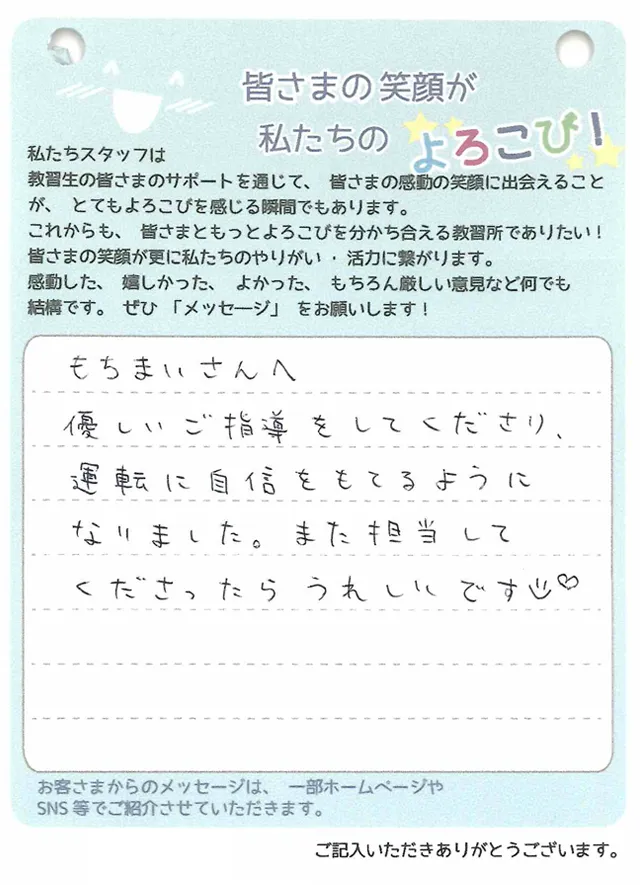 皆さまの笑顔が
私たちの よろこび！
私たちスタッフは
教習生の皆さまのサポートを通じて、 皆さまの感動の笑顔に出会えること
が、 とてもよろこびを感じる瞬間でもあります。
これからも、 皆さまともっとよろこびを分かち合える教習所でありたい！
皆さまの笑顔が更に私たちのやりがい・活力に繋がります。
感動した、 嬉しかった、 よかった、 もちろん厳しい意見など何でも
結構です。 ぜひ 「メッセージ」 をお願いします！
もちまいさんへ
優しいご指導をしてくださり、
運転に自信をもてるように
なりました。また担当して
くださったらうれしいです
お客さまからのメッセージは、 一部ホームページや
SNS 等でご紹介させていただきます。
ご記入いただきありがとうございます。